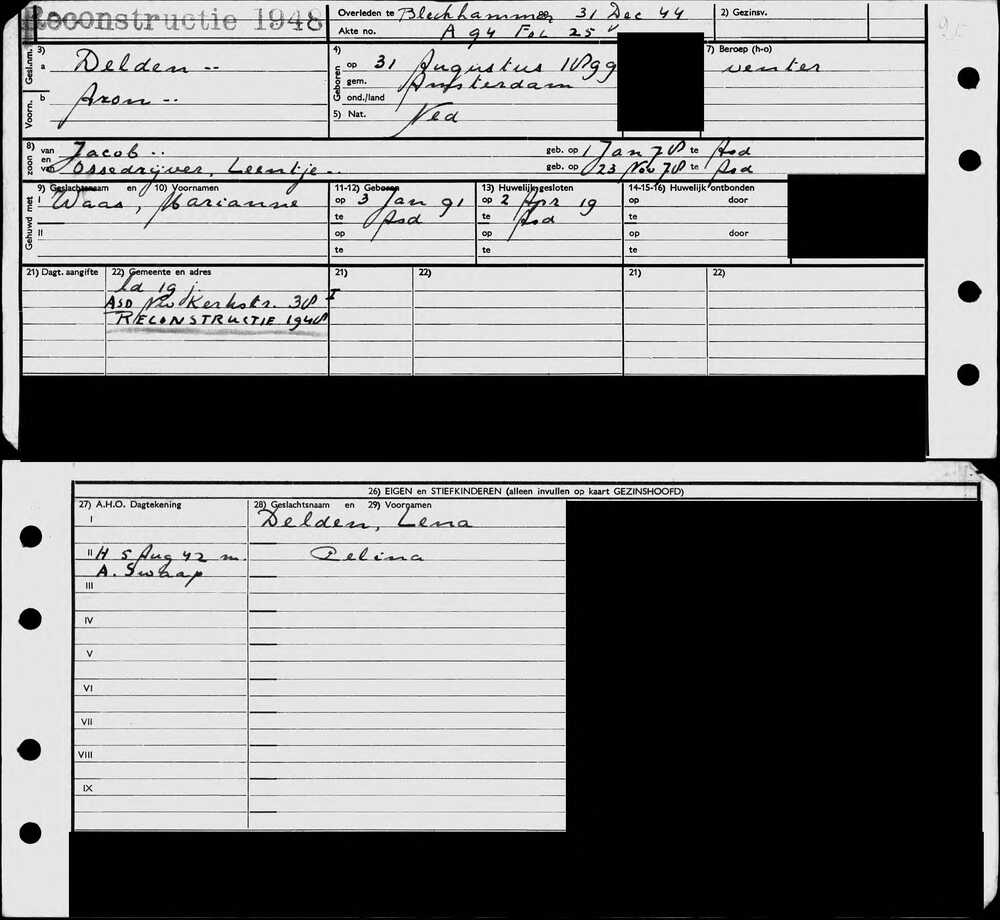 Reconstructie 1948
Overleden te Blechhammer 31 Dec 44
Akte no. A 94 Fol 25
2) Gezinsv.
Gesl.nm. 3) a Delden --
Voorn. b Aron --
4) Geboren op 31 Augustus 1899
gem. Amsterdam
ond./land
5) Nat. Ned
7) Beroep (h-o)
venter
8) zoon van Jacob -- geb. op 1 Jan 78 te Asd
en van Ossedrijver, Leentje -- geb. op 23 Nov 78 te Asd
Gehuwd met 9) Geslachtsnaam en 10) Voornamen 11-12) Geboren 13) Huwelijk gesloten 14-15-16) Huwelijk ontbonden
I Waas, Marianne op 3 Jan 91 op 2 Apr 19 op door
te Asd te Asd te
II op op op door
te te te
21) Dagt. aangifte 22) Gemeente en adres 21) 22) 21) 22)
ld 19 j.
ASD Nw Kerkstr. 38 I
RECONSTRUCTIE 1948
26) EIGEN en STIEFKINDEREN (alleen invullen op kaart GEZINSHOOFD)
27) A.H.O. Dagtekening 28) Geslachtsnaam en 29) Voornamen
I Delden, Lena
II H 5 Aug 42 m. Celina
A. Swaap
III
IV
V
VI
VII
VIII
IX